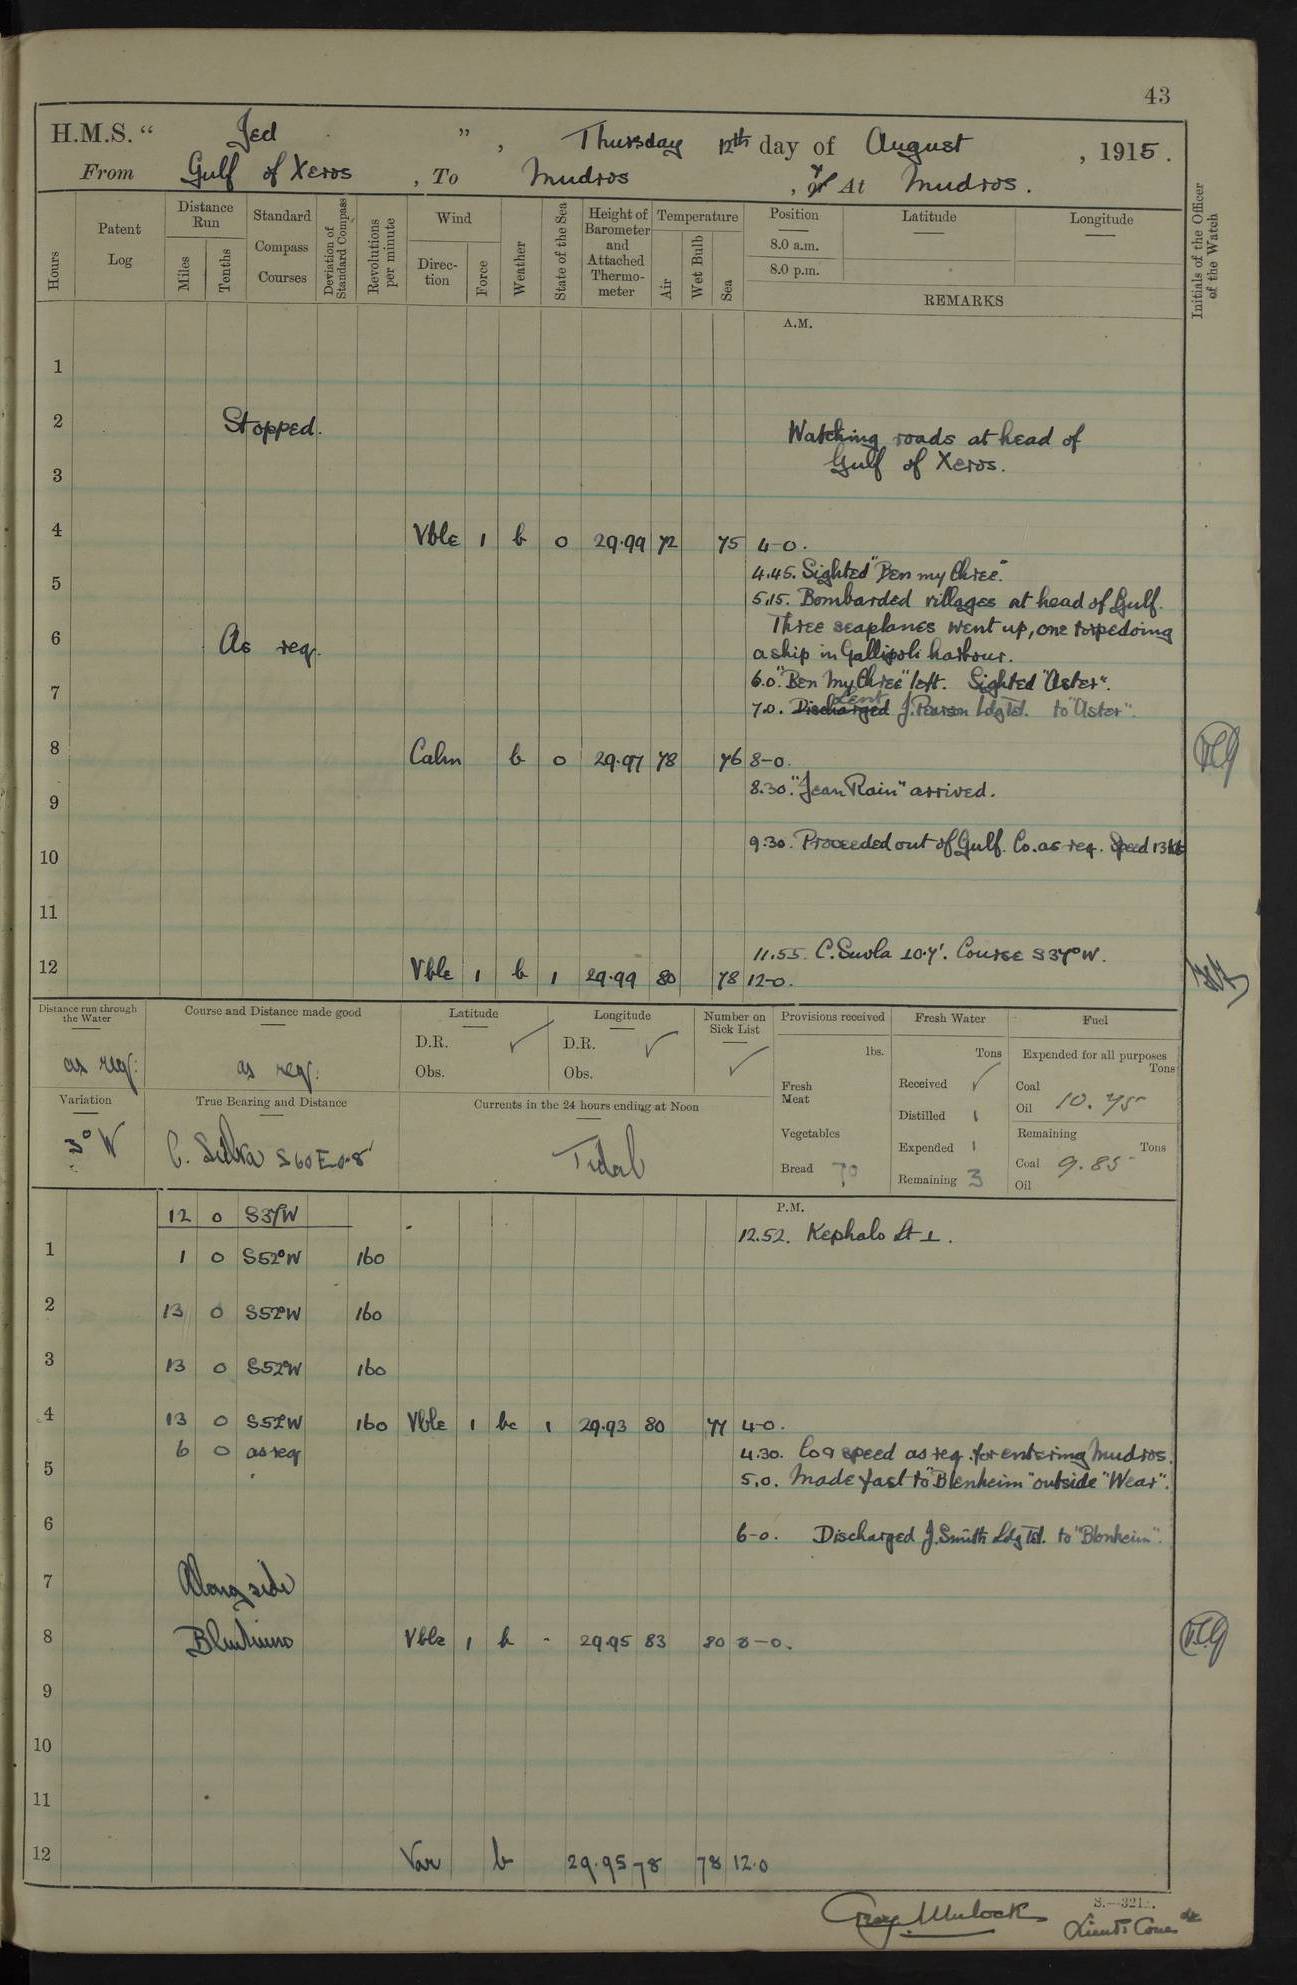 43
H.M.S. “ Jed ” , Thursday 12th day of August , 1915.
From Gulf of Xeros , To Mudros , or & At Mudros.
Hours
Patent Log
Distance Run
Miles
Tenths
Standard Compass Courses
Deviation of Standard Compass
Revolutions per minute
Wind
Direction
Force
Weather
State of the Sea
Height of Barometer and Attached Thermometer
Temperature
Air
Wet Bulb
Sea
Position
Latitude
Longitude
8.0 a.m.
8.0 p.m.
REMARKS
Initials of the Officer of the Watch
A.M.
1
2 Stopped. Watching roads at head of
Gulf of Xeros.
3
4 Vble 1 b 0 29.99 72 75 4-0.
4.45. Sighted "Ben my Chree".
5 5.15. Bombarded villages at head of Gulf.
Three seaplanes went up, one torpedoing
6 As req. a ship in Gallipoli harbour.
6.0. "Ben My Chree" left. Sighted "Aster".
7 7.0. Discharged Lent J. Pearson Ldg Tel. to "Aster".
8 Calm b 0 29.97 78 76 8-0.
8.30. "Jean Rain" arrived.
9
9.30. Proceeded out of Gulf. Co. as req. Speed 13 kts
10
11
11.55. C. Suvla 10.7'. Course S37°W.
12 Vble 1 b 1 29.99 80 78 12-0.
Distance run through the Water
as req:
Course and Distance made good
as req:
Latitude
D.R. ✓
Obs.
Longitude
D.R. ✓
Obs.
Number on Sick List
✓
Provisions received
lbs.
Fresh Meat
Vegetables
Bread 70
Fresh Water
Tons
Received ✓
Distilled 1
Expended 1
Remaining 3
Fuel
Expended for all purposes
Tons
Coal
Oil 10.75
Remaining
Tons
Coal 9.85
Oil
Variation
3° W
True Bearing and Distance
C. Suvla S60E 0.8'
Currents in the 24 hours ending at Noon
Tidal
P.M.
12 0 S37W
12.52. Kephalo Lt ⊥.
1 1 0 S52°W 160
2 13 0 S52°W 160
3 13 0 S52°W 160
4 13 0 S52°W 160 Vble 1 bc 1 29.93 80 77 4-0.
6 0 as req 4.30. Co & speed as req. for entering Mudros.
5 5.0. Made fast to "Blenheim" outside "Wear".
6 6-0. Discharged J. Smith Ldg Tel. to "Blenheim".
7 Alongside
8 Blenheim Vble 1 b - 29.95 83 80 8-0.
9
10
11
12 Var b 29.95 78 78 12.0
S.—321
Mulock
Lieut Com